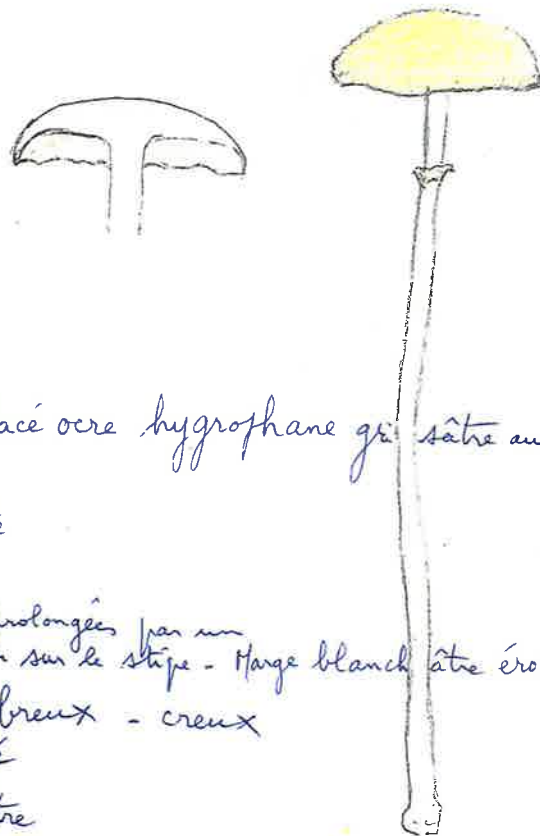 acé ocre hygrophane gri sâtre au
rolongées par un
sur le stipe - Marge blanch âtre éro
breux - creux
tre